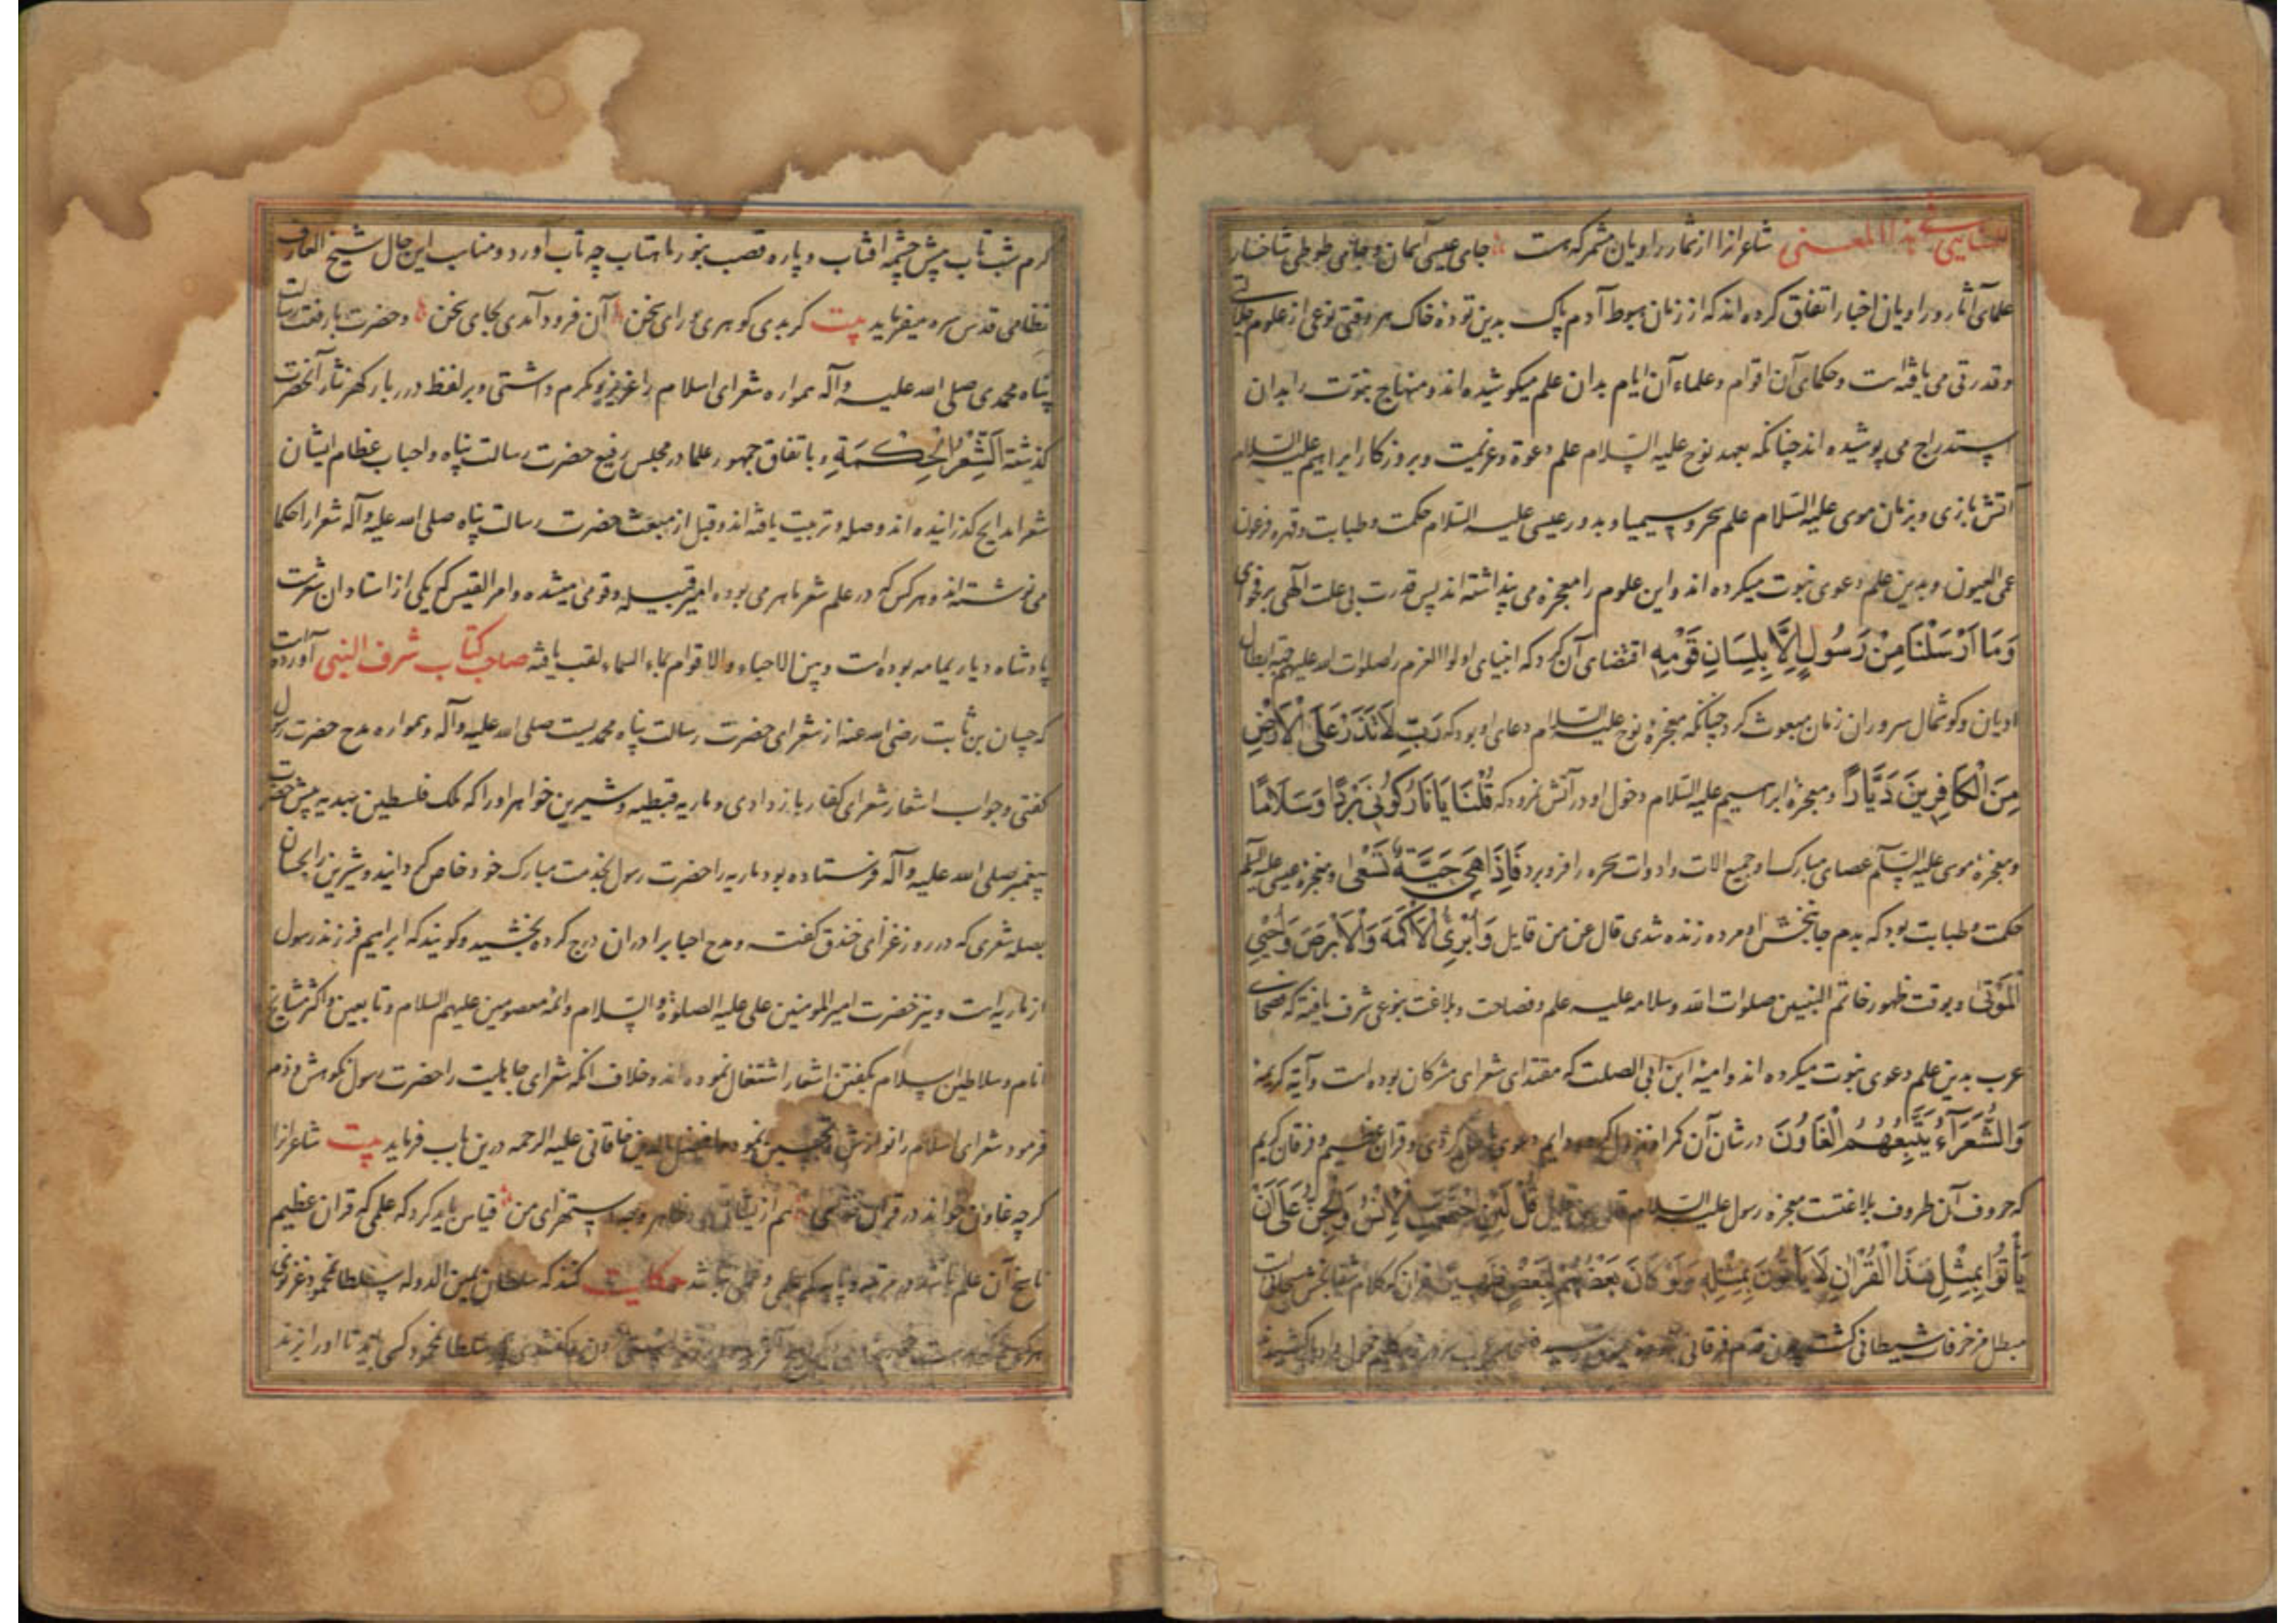 شاعرانرا از شمار راویان مشمر که هست جای عیسی آسمان و جای طوطی شاخسار
علمای آثار و راویان اخبار اتفاق کرده اند که از زمان هبوط آدم پاک بدین توده خاک هر وقتی نوعی از علوم
و قدرتی می یافته است و حکمای آن اقوام و علماء آن ایام بدان علم میکوشیده اند و منهاج نبوت را بدان
استدراج می پوشیده اند چنانکه بعهد نوح علیه السلام علم دعوة و عزیمت و بروزکار ابراهیم علیه السلام
آتش بازی و بزمان موسی علیه السلام علم سحر و سیمیا و بدور عیسی علیه السلام حکمت و طبابت و قهره فرعونا
عمی العیون و بدین علم دعوی نبوت میکرده اند و این علوم را معجزه می پنداشته اند پس قدرت بی علت الهی بر فحوای
وَمَا اَرْسَلْنَا مِنْ رَسُولٍ اِلَّا بِلِسَانِ قَوْمِهِ اقتضای آن کرد که انبیای اولوا العزم را صلوات الله علیهم جهة ابطال
ادیان و کوشمال سروران زمان مبعوث کرد چنانکه معجزه نوح علیه السلام دعای او بود که رَبِّ لَا تَذَرْ عَلَی الْاَرْضِ
مِنَ الْکَافِرِینَ دَیَّارًا و معجزه ابراهیم علیه السلام دخول او در آتش نمرود که قُلْنَا یَا نَارُ کُونِی بَرْدًا وَسَلَامًا
و معجزه موسی علیه السلام عصای مبارک او جمیع الات و ادوات سحره را فرو برد فَاِذَا هِیَ حَیَّةٌ تَسْعَی و معجزه عیسی علیه السلام
حکمت و طبابت بود که بدم جانبخش او مرده زنده شدی قال عز من قایل وَاُبْرِئُ الْاَکْمَهَ وَالْاَبْرَصَ وَاُحْیِی
الْمَوْتَی و بوقت ظهور خاتم النبیین صلوات الله و سلامه علیه علم و فصاحت و بلاغت بنوعی شرف یافته که فصحای
عرب بدین علم دعوی نبوت میکرده اند و امیة ابن ابی الصلت که مقتدای شعرای مشرکان بوده است و آیه کریمه
وَالشُّعَرَآءُ یَتَّبِعُهُمُ الْغَاوُنَ در شان آن کمراه نزول کرده دایم دعوی باطل کردی و قرآن عظیم و فرقان کریم
که حروف آن ظروف بلاغتست معجزه رسول علیه السلام قال من قایل قُلْ لَئِنِ اجْتَمَعَتِ الْاِنْسُ وَالْجِنُّ عَلَی اَنْ
یَأْتُوا بِمِثْلِ هَذَا الْقُرْاٰنِ لَا یَأْتُونَ بِمِثْلِهِ وَلَوْ کَانَ بَعْضُهُمْ لِبَعْضٍ ظَهِیرًا قرآن که کلام
مبطل مزخرفات شیطانی کشت چون
کرم شب تاب پیش چشمه افتاب و پاره قصب بنور ماهتاب چه تاب آورد و مناسب این حال شیخ العارف
نظامی قدس سره میفرماید بیت کر بدی کوهری ورای سخن آن فرود آمدی بجای سخن و حضرت با رفعت رسالت
پناه محمدی صلی الله علیه وآله همواره شعرای اسلام را عزیز و مکرم داشتی و بر لفظ درربار کهر نثار آنحضرت
کذشته اَلشِّعْرُ الْحِکْمَةِ و باتفاق جمهور علما در مجلس رفیع حضرت رسالت پناه و احباب عظام ایشان
شعرا مدایح کذرانیده اند و صله و تربیت یافته اند و قبل از مبعث حضرت رسالت پناه صلی الله علیه وآله شعرا را حکما
می نوشته اند و هر کس که در علم شعر ماهر می بوده امیر قبیله و قومی میشده و امر القیس که یکی از استادان شعرست
پادشاه دیار یمامه بوده است و بین الاحیاء والاقوام بماء السماء لقب یافته صاحب کتاب شرف النبی آورده است
که حسان بن ثابت رضی الله عنه از شعرای حضرت رسالت پناه محمدیست صلی الله علیه وآله و همواره مدح حضرت رسول
کفتی و جواب اشعار شعرای کفار باز دادی و ماریه قبطیه و شیرین خواهر اورا که ملک فلسطین بهدیه پیش حضرت
پیغمبر صلی الله علیه وآله فرستاده بود ماریه را حضرت رسول بخدمت مبارک خود خاص کردانید و شیرین را بحسان
بصله شعری که در روز غزای خندق کفته و مدح احبا بر ادران درج کرده بخشید و کویند که ابراهیم فرزند رسول
از ماریه است و نیز حضرت امیر المومنین علی علیه الصلوة والسلام و ائمه معصومین علیهم السلام و تابعین و اکثر مشایخ
انام و سلاطین اسلام بکفتن اشعار اشتغال نموده اند و خلاف انکه شعرای جاهلیت را حضرت رسول نکوهش و ذم
فرمود شعرای اسلام را نوازش و تحسین نمود و افضل الدین خاقانی علیه الرحمه درین باب فرماید بیت شاعرانرا
کرچه غاون خواند در قرآن خدای هم ازیشان ظاهر من قیاس باید کرد که علمی که قران عظیم
ناسخ آن علم باشد در مرتبه و پایه کم علمی و فنی نباشد حکایت کنند که سلطان یمین الدوله سلطان محمود غزنوی
سلطان محمود کسی باید تا اورا نزند